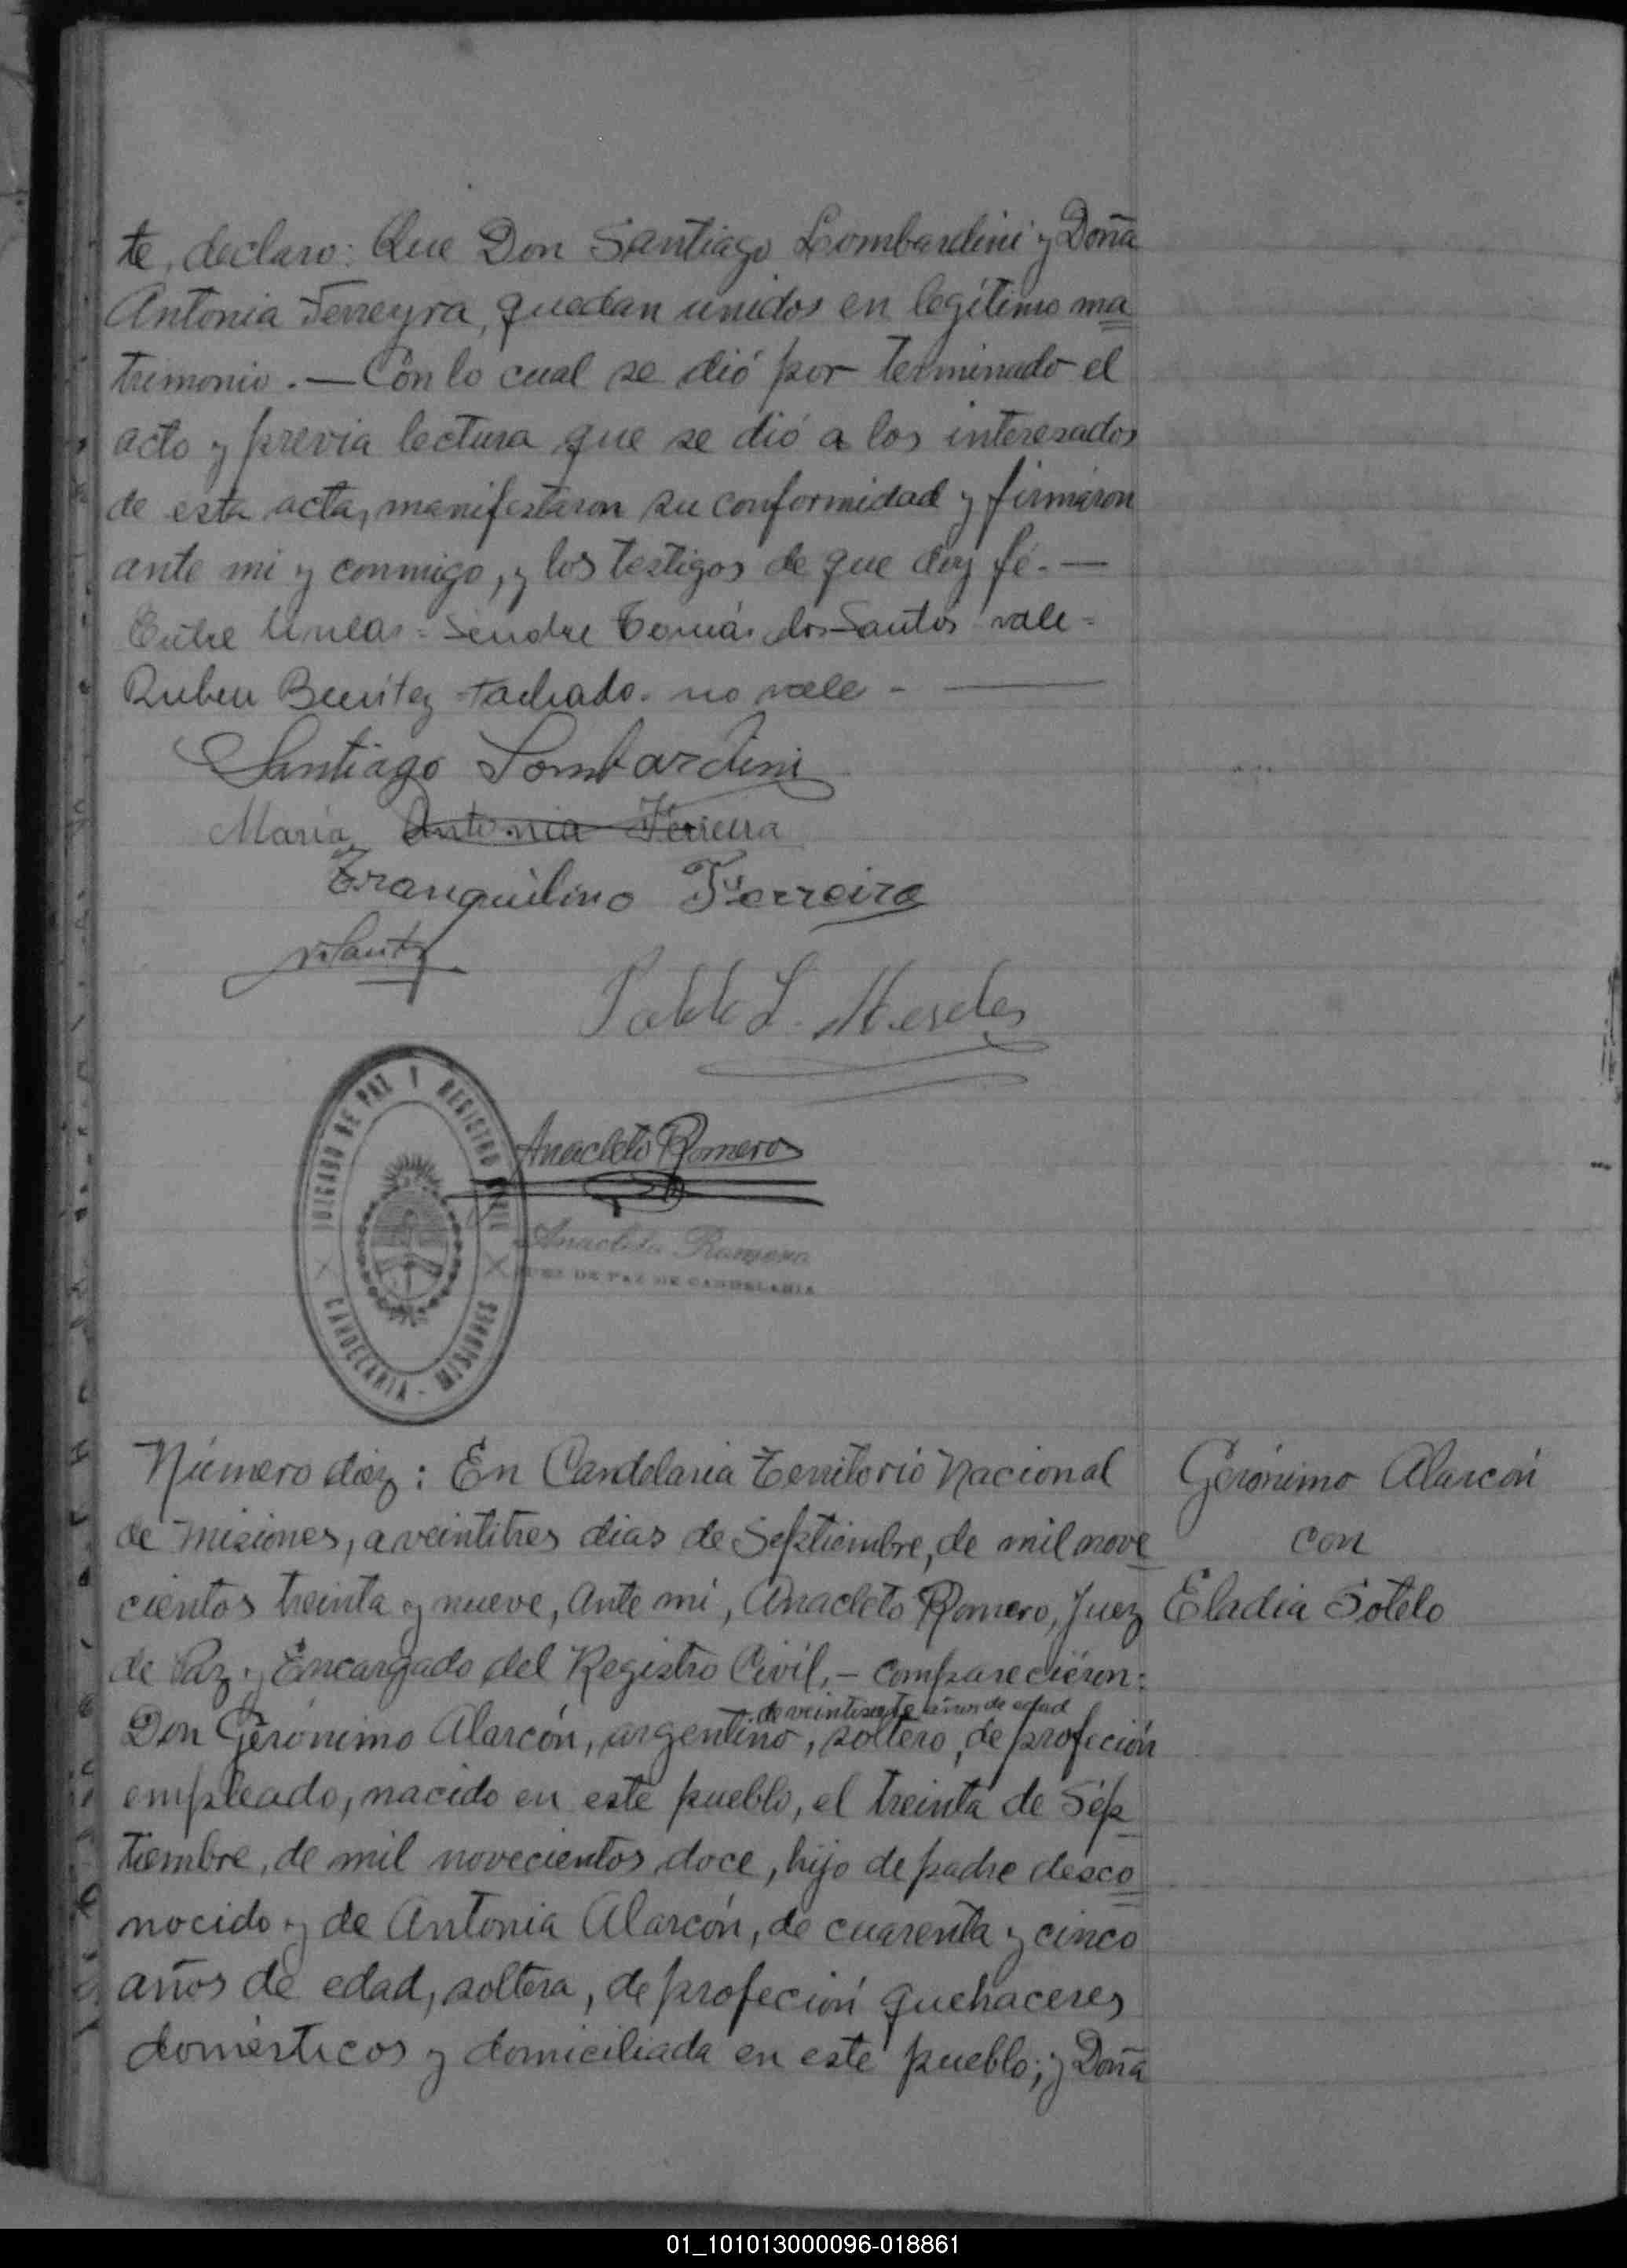 te, declaro: Que Don Santiago Lombardini y Doña
Antonia Ferreyra, quedan unidos en legítimo ma
trimonio. — Con lo cual se dió por terminado el
acto y previa lectura que se dió a los interesados
de esta acta, manifestaron su conformidad y firmaron
ante mi y conmigo, y los testigos de que doy fé. —
Entre lineas = Tomás dos Santos vale =
Ruben Benitez tachado. no vale - —
Santiago Lombardini
Maria Antonia Ferreira
Tranquilino Ferreira
Pablo L.
JUZGADO DE PAZ Y REGISTRO CIVIL
CANDELARIA - MISIONES
Anacleto Romero
Anacleto Romero
JUEZ DE PAZ DE CANDELARIA
Número diez: En Candelaria Territorio Nacional
de Misiones, a veintitres dias de Septiembre, de mil nove
cientos treinta y nueve, ante mi, Anacleto Romero, Juez
de Paz y Encargado del Registro Civil, - comparecieron:
de veintisiete años de edad
Don Gerónimo Alarcón, argentino, soltero, de profeción
empleado, nacido en este pueblo, el treinta de Sep
tiembre, de mil novecientos doce, hijo de padre desco
nocido y de Antonia Alarcón, de cuarenta y cinco
años de edad, soltera, de profeción quehaceres
domésticos y domiciliada en este pueblo; y Doña
Gerónimo Alarcón
con
Eladia Sotelo
01_101013000096-018861